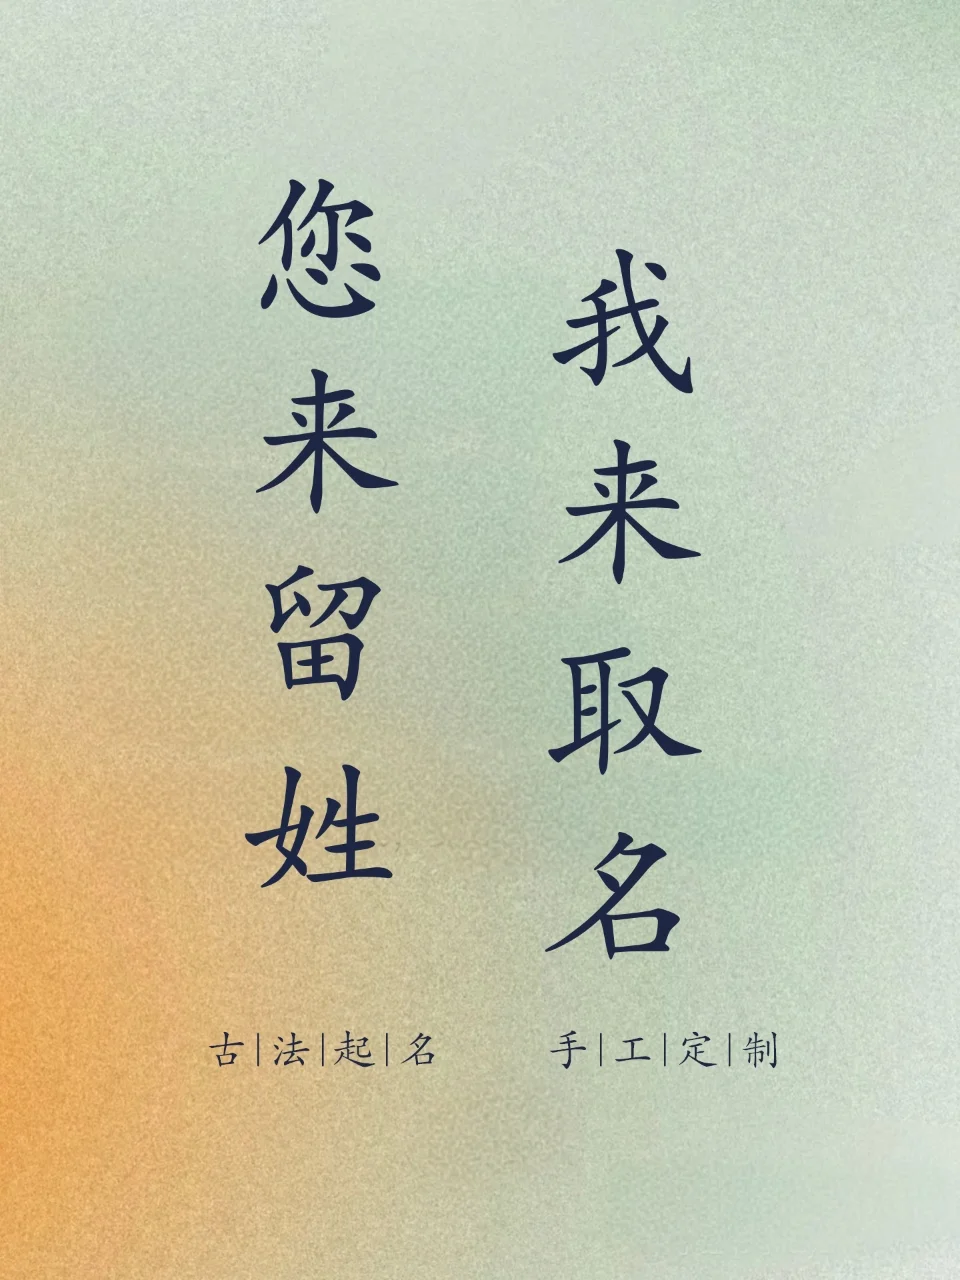 您来留姓
我来取名
古|法|起|名
手|工|定|制